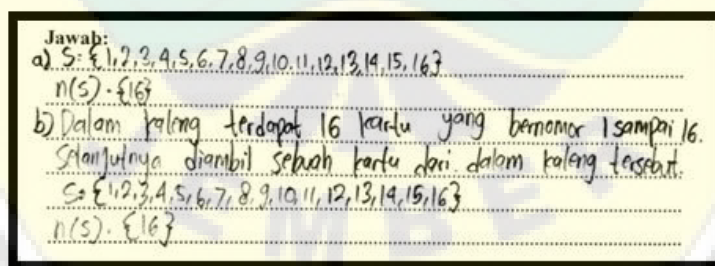 Jawab:
a) S = {1,2,3,4,5,6,7,8,9,10,11,12,13,14,15,16}
n(S) = {16}
b) Dalam kaleng terdapat 16 kartu yang bernomor 1 sampai 16.
Selanjutnya diambil sebuah kartu dari dalam kaleng tersebut.
S = {1,2,3,4,5,6,7,8,9,10,11,12,13,14,15,16}
n(S) = {16}